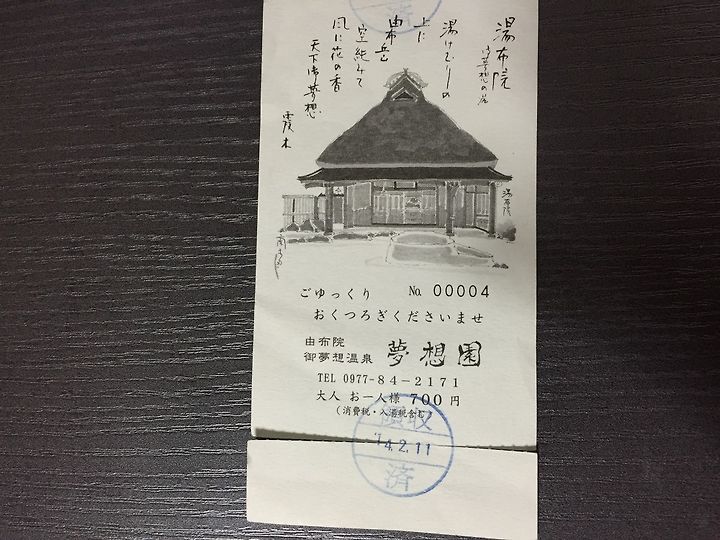 湯布院
御夢想の宿
湯けむりの
上に
由布岳
空純みて
風に花の香
天下御夢想
霞木
湯布院
ごゆっくり No. 00004
おくつろぎくださいませ
由布院
御夢想温泉 夢想園
TEL 0977-84-2171
大人 お一人様 700円
(消費税・入湯税含む)
領収
'14.2.11
済